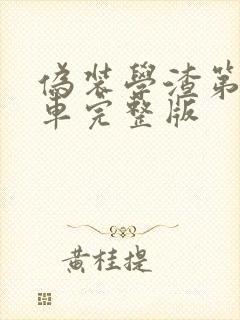 偽裝學渣第
車完整版
黃桂提